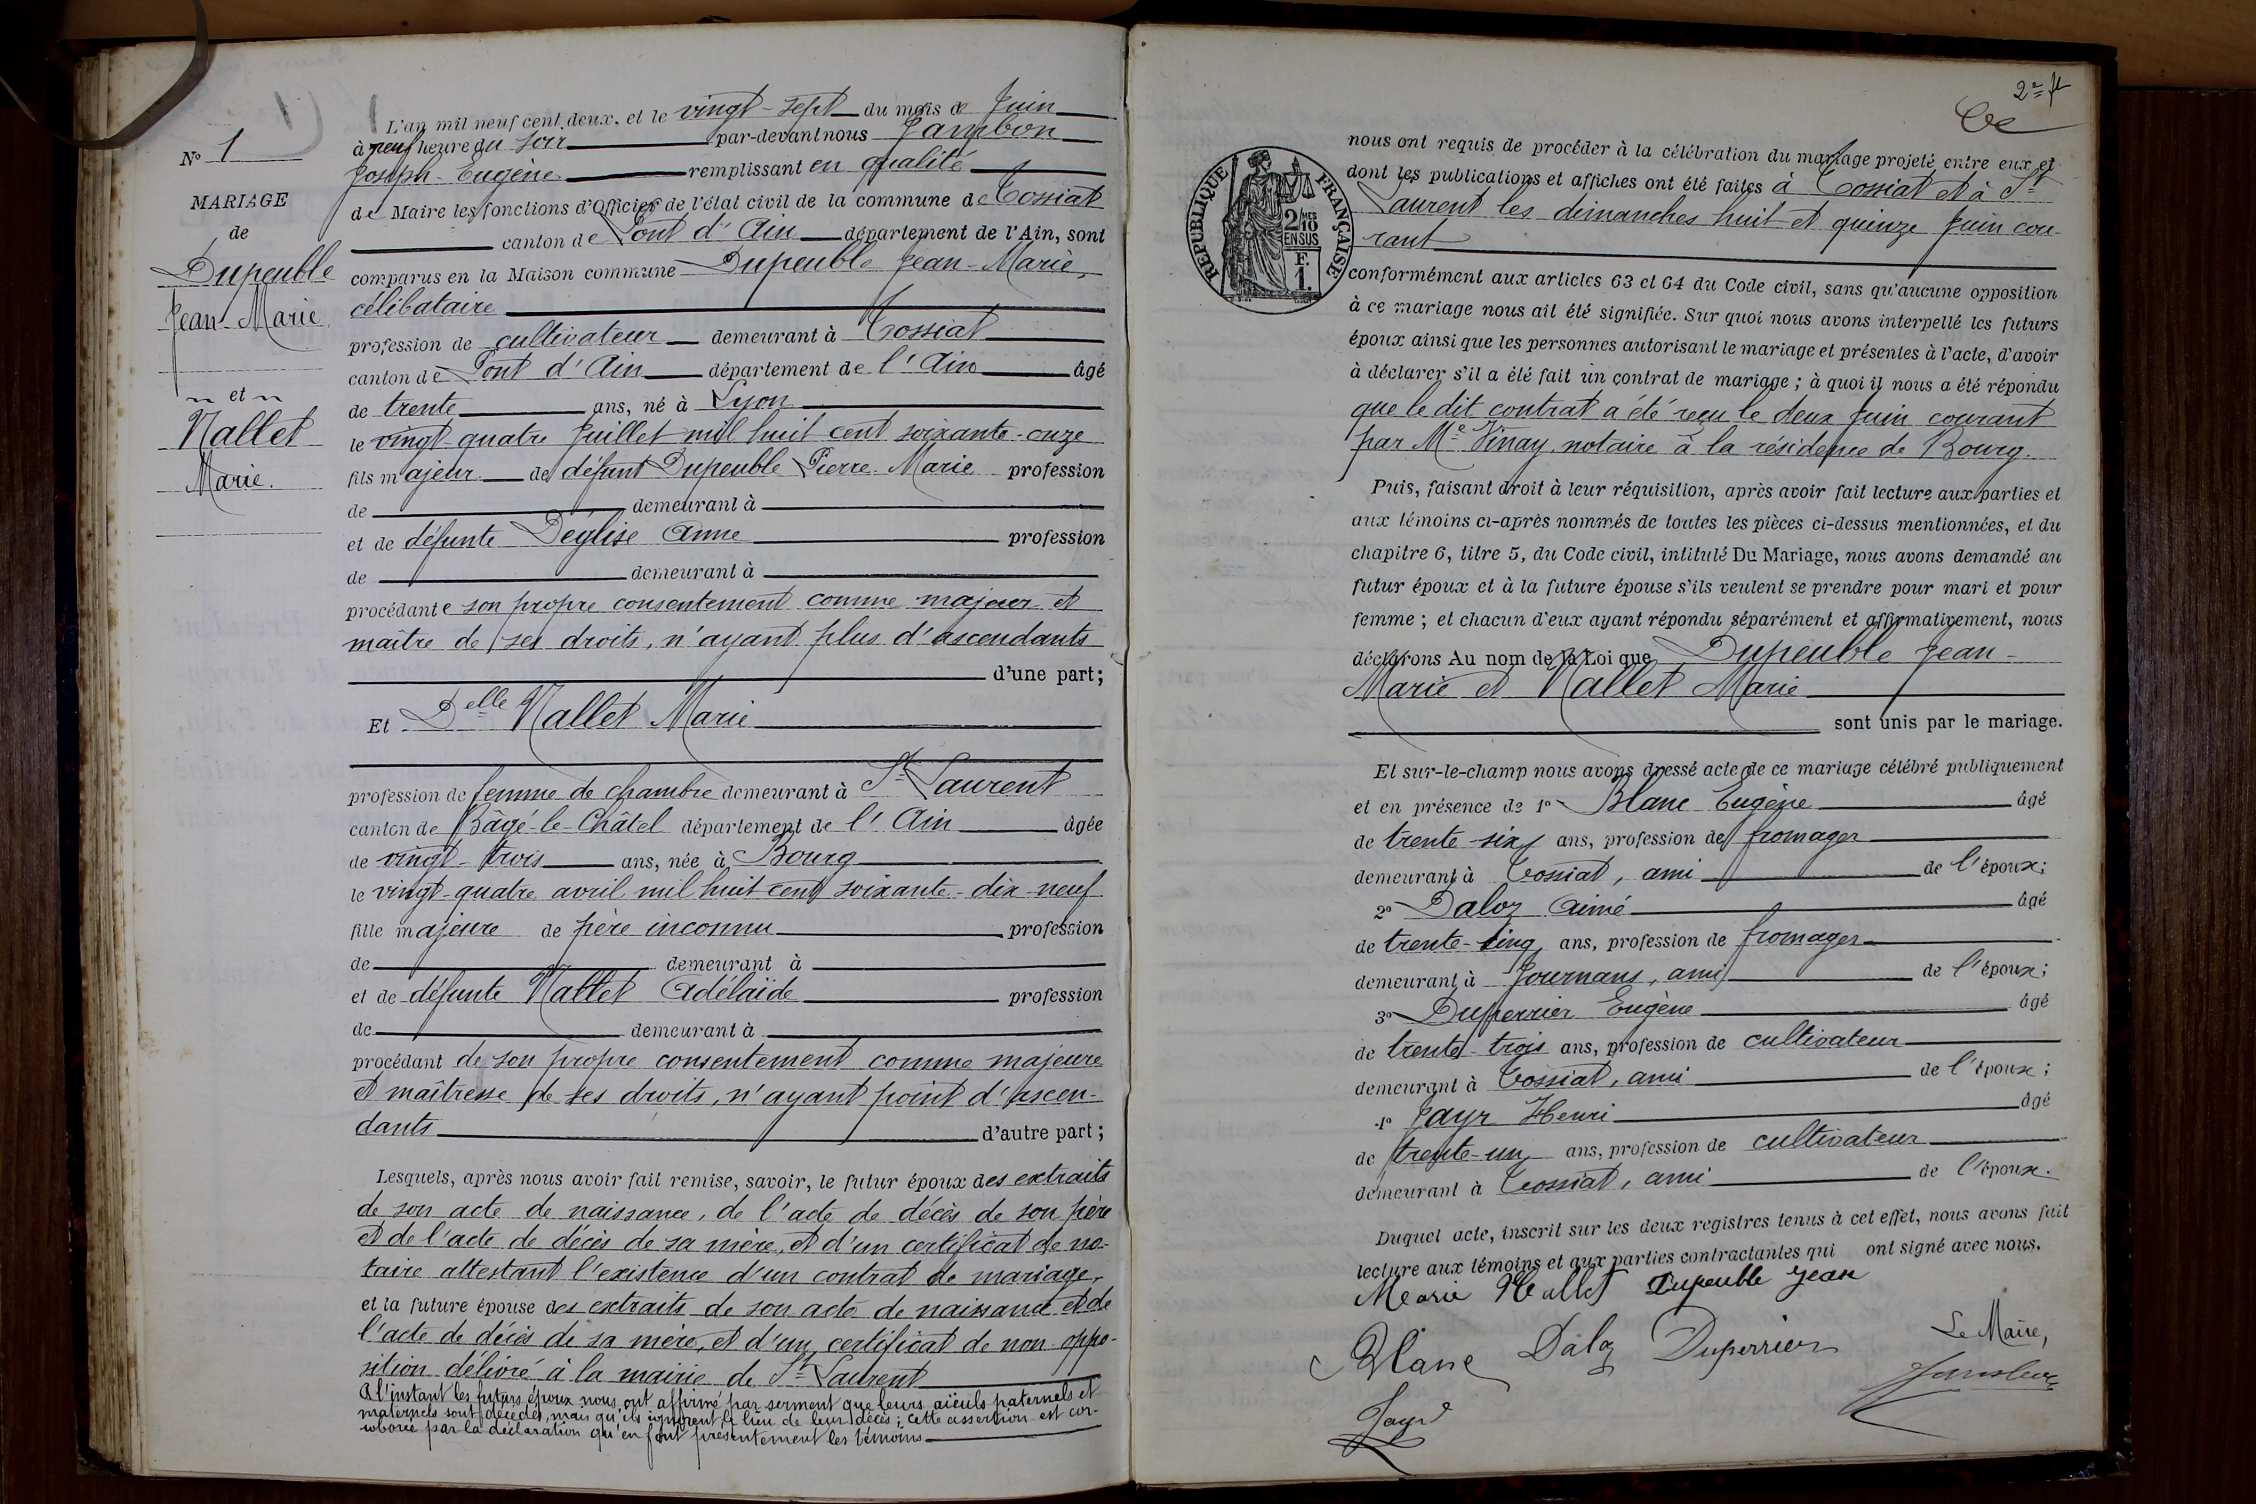 N° 1
MARIAGE
de
Dupeuble
Jean-Marie
et
Nallet
Marie.
L'an mil neuf cent deux, et le vingt-sept du mois de Juin
à neuf heure du soir par-devant nous Jambon
Joseph-Eugène remplissant en qualité
de Maire les fonctions d'Officier de l'état civil de la commune de Tossiat
canton de Pont d'Ain département de l'Ain, sont
comparus en la Maison commune Dupeuble Jean-Marie,
célibataire
profession de cultivateur demeurant à Tossiat
canton de Pont d'Ain département de l'Ain âgé
de trente ans, né à Lyon
le vingt-quatre Juillet mil huit cent soixante-onze
fils majeur de défunt Dupeuble Pierre-Marie profession
de demeurant à
et de défunte Déglise Anne profession
de demeurant à
procédant e son propre consentement comme majeur et
maître de ses droits, n'ayant plus d'ascendants
d'une part;
Et Delle Nallet Marie
profession de femme de chambre demeurant à St Laurent
canton de Bâgé-le-Châtel département de l'Ain âgée
de vingt-trois ans, née à Bourg
le vingt-quatre avril mil huit cent soixante-dix-neuf
fille majeure de père inconnu profession
de demeurant à
et de défunte Nallet Adélaïde profession
de demeurant à
procédant de son propre consentement comme majeure
et maîtresse de ses droits, n'ayant point d'ascen-
dants d'autre part;
Lesquels, après nous avoir fait remise, savoir, le futur époux des extraits
de son acte de naissance, de l'acte de décès de son père
et de l'acte de décès de sa mère, et d'un certificat de no-
taire attestant l'existence d'un contrat de mariage,
et la future épouse des extraits de son acte de naissance et de
l'acte de décès de sa mère, et d'un certificat de non oppo-
sition délivré à la mairie de St Laurent
A l'instant les futurs époux nous ont affirmé par serment que leurs aïeuls paternels et
maternels sont décédés, mais qu'ils ignorent le lieu de leur décès; cette assertion est cor-
roborée par la déclaration qu'en font présentement les témoins
2e ft
RÉPUBLIQUE FRANÇAISE
2/10 MES
EN SUS
F.
1.
nous ont requis de procéder à la célébration du mariage projeté entre eux et
dont les publications et affiches ont été faites à Tossiat et à St
Laurent les dimanches huit et quinze Juin cou-
rant
conformément aux articles 63 et 64 du Code civil, sans qu'aucune opposition
à ce mariage nous ait été signifiée. Sur quoi nous avons interpellé les futurs
époux ainsi que les personnes autorisant le mariage et présentes à l'acte, d'avoir
à déclarer s'il a été fait un contrat de mariage; à quoi il nous a été répondu
que le dit contrat a été reçu le deux Juin courant
par Me Vinay, notaire à la résidence de Bourg.
Puis, faisant droit à leur réquisition, après avoir fait lecture aux parties et
aux témoins ci-après nommés de toutes les pièces ci-dessus mentionnées, et du
chapitre 6, titre 5, du Code civil, intitulé Du Mariage, nous avons demandé au
futur époux et à la future épouse s'ils veulent se prendre pour mari et pour
femme; et chacun d'eux ayant répondu séparément et affirmativement, nous
déclarons Au nom de la Loi que Dupeuble Jean-
Marie et Nallet Marie
sont unis par le mariage.
Et sur-le-champ nous avons dressé acte de ce mariage célébré publiquement
et en présence de 1° Blanc Eugène âgé
de trente-six ans, profession de fromager
demeurant à Tossiat, ami de l'époux;
2° Daloz Aimé âgé
de trente-cinq ans, profession de fromager
demeurant à Journans, ami de l'époux;
3° Duperrier Eugène âgé
de trente-trois ans, profession de cultivateur
demeurant à Tossiat, ami de l'époux;
4° Jayr Henri âgé
de trente-un ans, profession de cultivateur
demeurant à Tossiat, ami de l'époux.
Duquel acte, inscrit sur les deux registres tenus à cet effet, nous avons fait
lecture aux témoins et aux parties contractantes qui ont signé avec nous.
Marie Nallet Dupeuble Jean
Blanc Daloz Duperrier Le Maire,
Jambon
Jayr